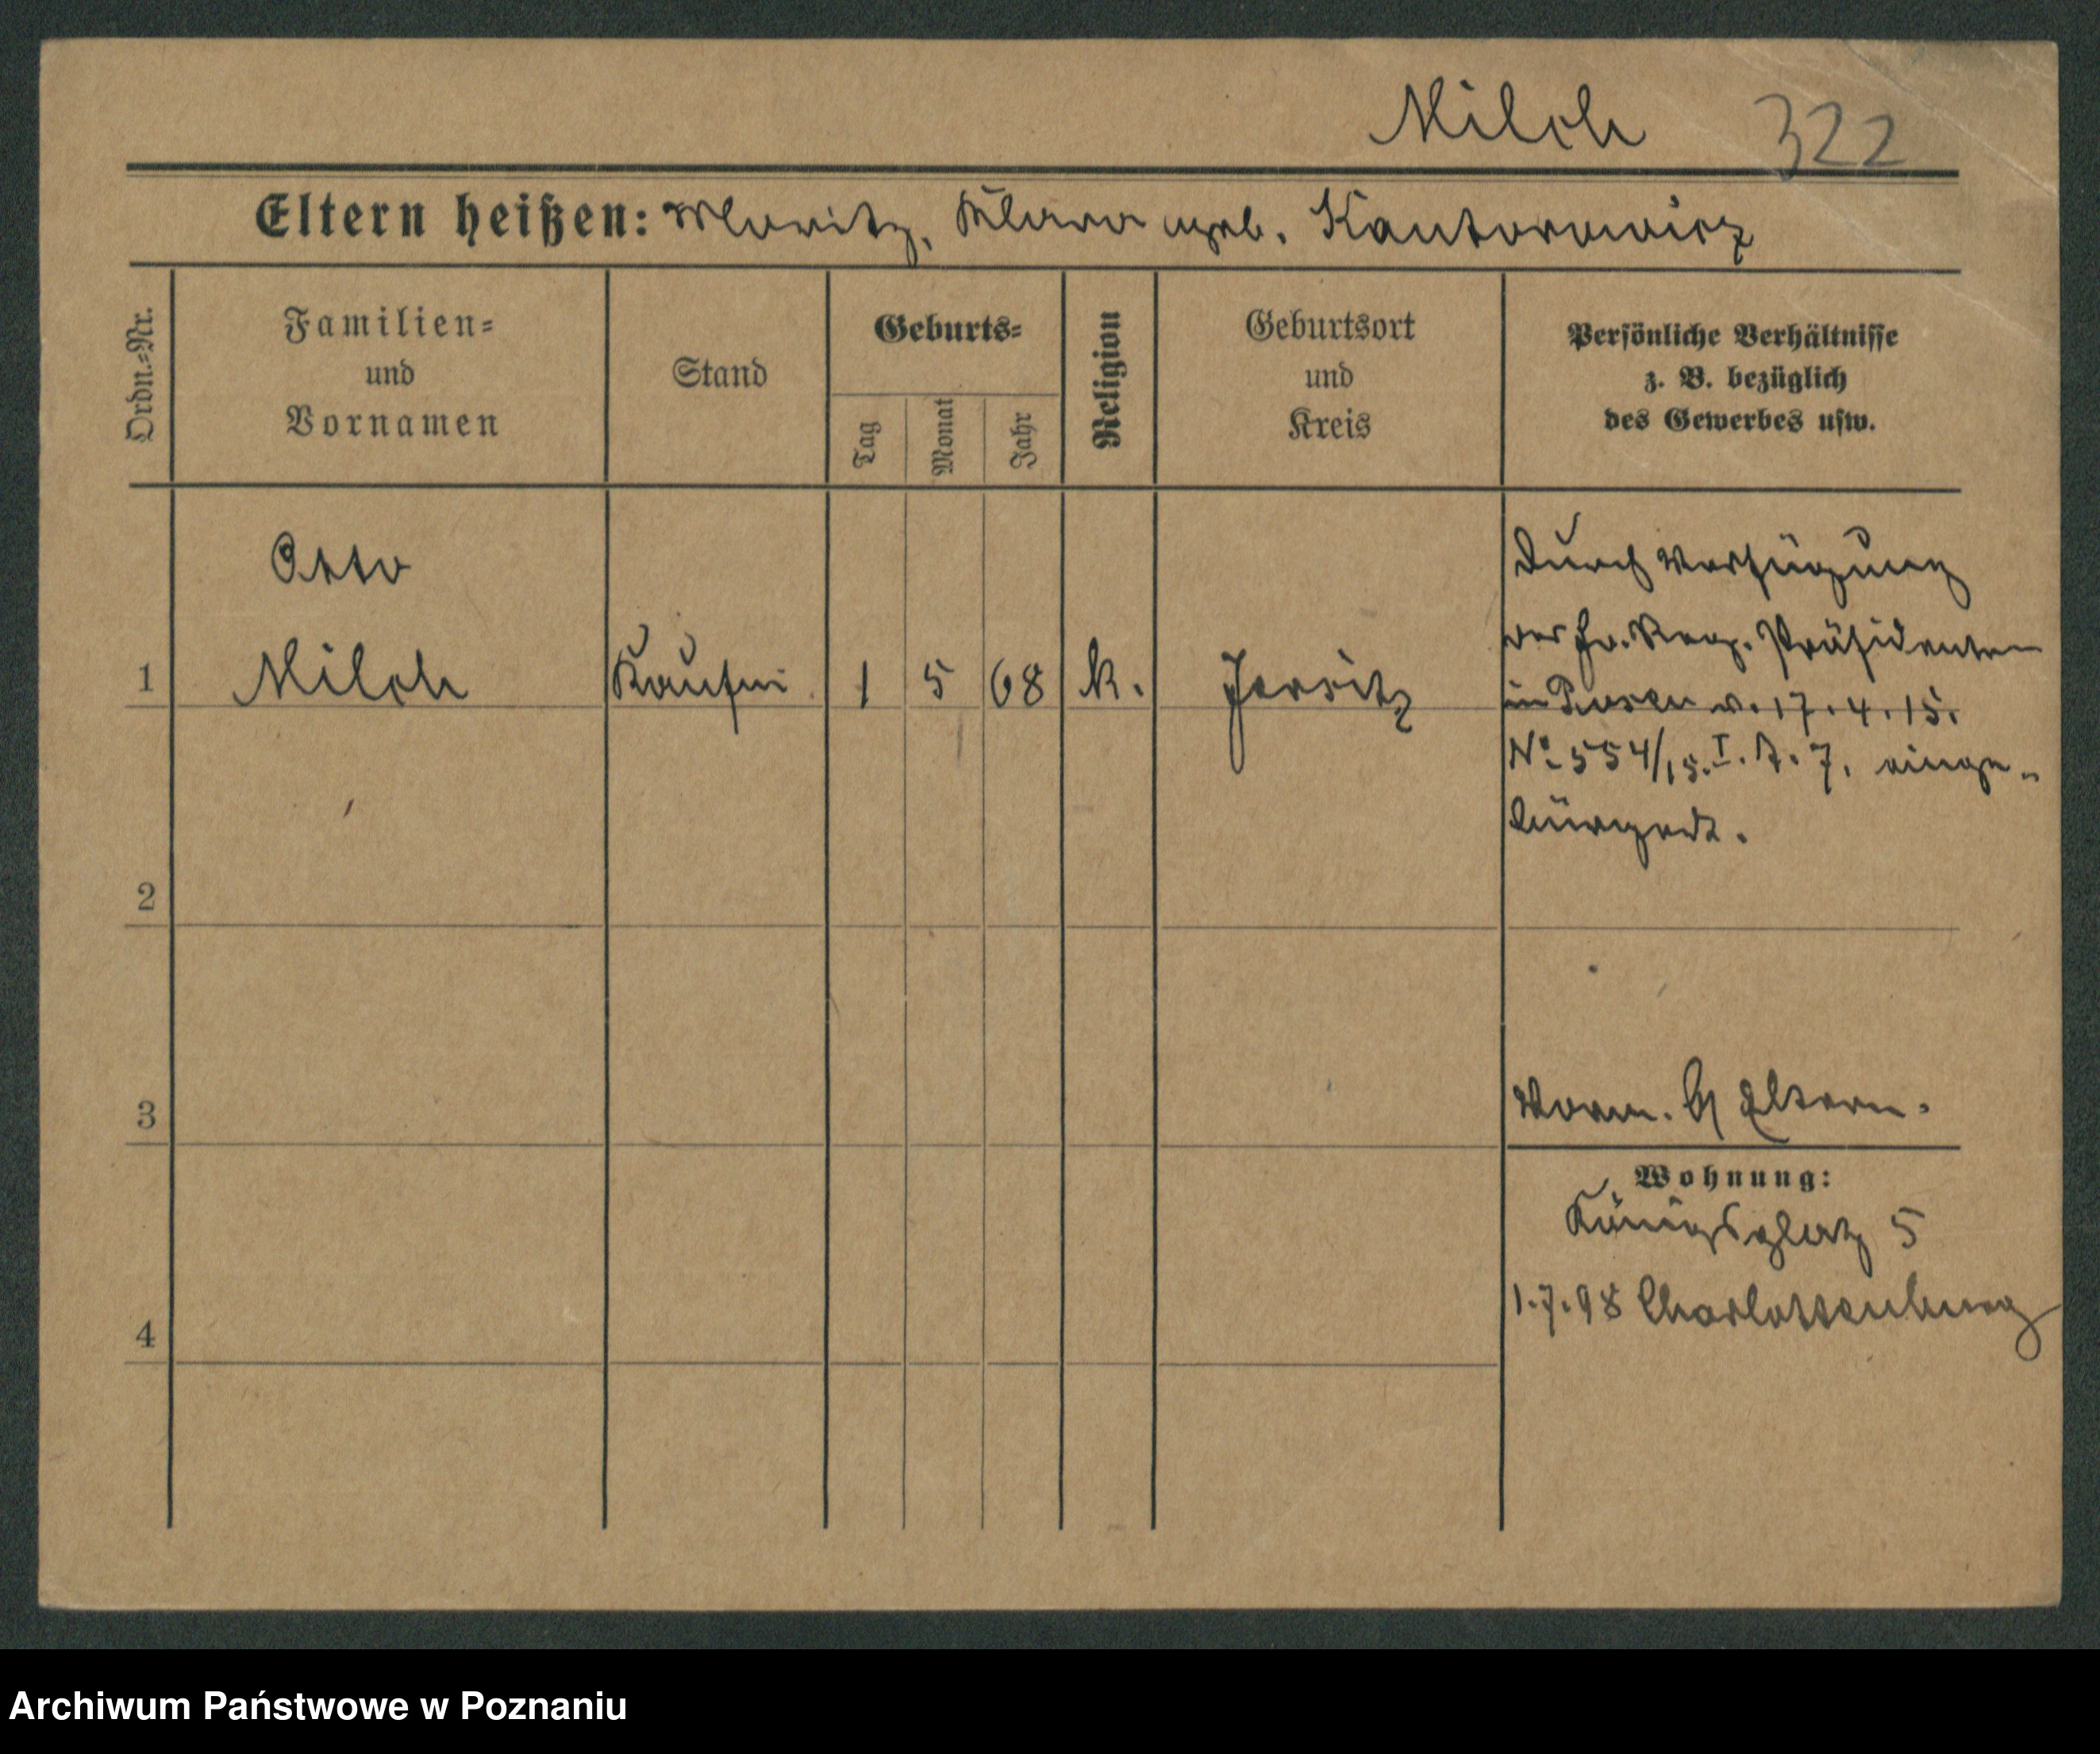 Milch 322
Eltern heißen: Moritz, Klara geb. Kantorowicz
Ordn.=Nr.
Familien=
und
Vornamen
Stand
Geburts=
Tag
Monat
Jahr
Religion
Geburtsort
und
Kreis
Persönliche Verhältnisse
z. B. bezüglich
des Gewerbes usw.
Otto
1 Milch Kaufm. 1 5 68 k. Jersitz
Durch Verfügung
des Hr. Reg. Präsidenten
in Posen v. 17.4.15.
No 554/15. I. A. 7. einge-
bürgert.
2
3
Vorm. Eltern.
Wohnung:
Königsplatz 5
1.7.98 Charlottenburg
4
Archiwum Państwowe w Poznaniu